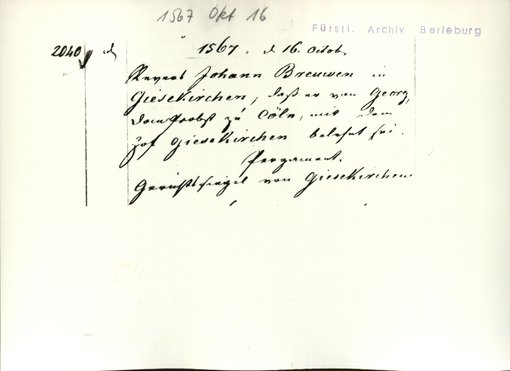 1567 Okt 16
Fürstl. Archiv Berleburg
2040 1567. d 16. Octob.
Revers Johann Breuwen in
Giesekirchen, daß er von Georg,
Domprobst zu Cöln, mit dem
Hof Giesekirchen belehnt sei.
Pergament.
Gerichtssiegel von Giesekirchen.